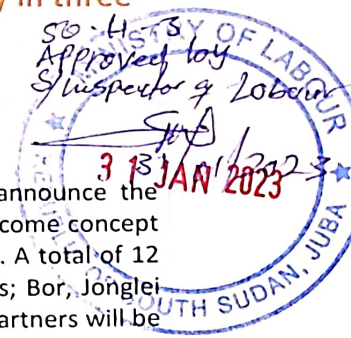 y in three
Approved by
S/Inspector of Labour
MINISTRY OF LABOUR
REPUBLIC OF SOUTH SUDAN, JUBA
31 JAN 2023
announce the
come concept
. A total of 12
s; Bor, Jonglei
artners will be